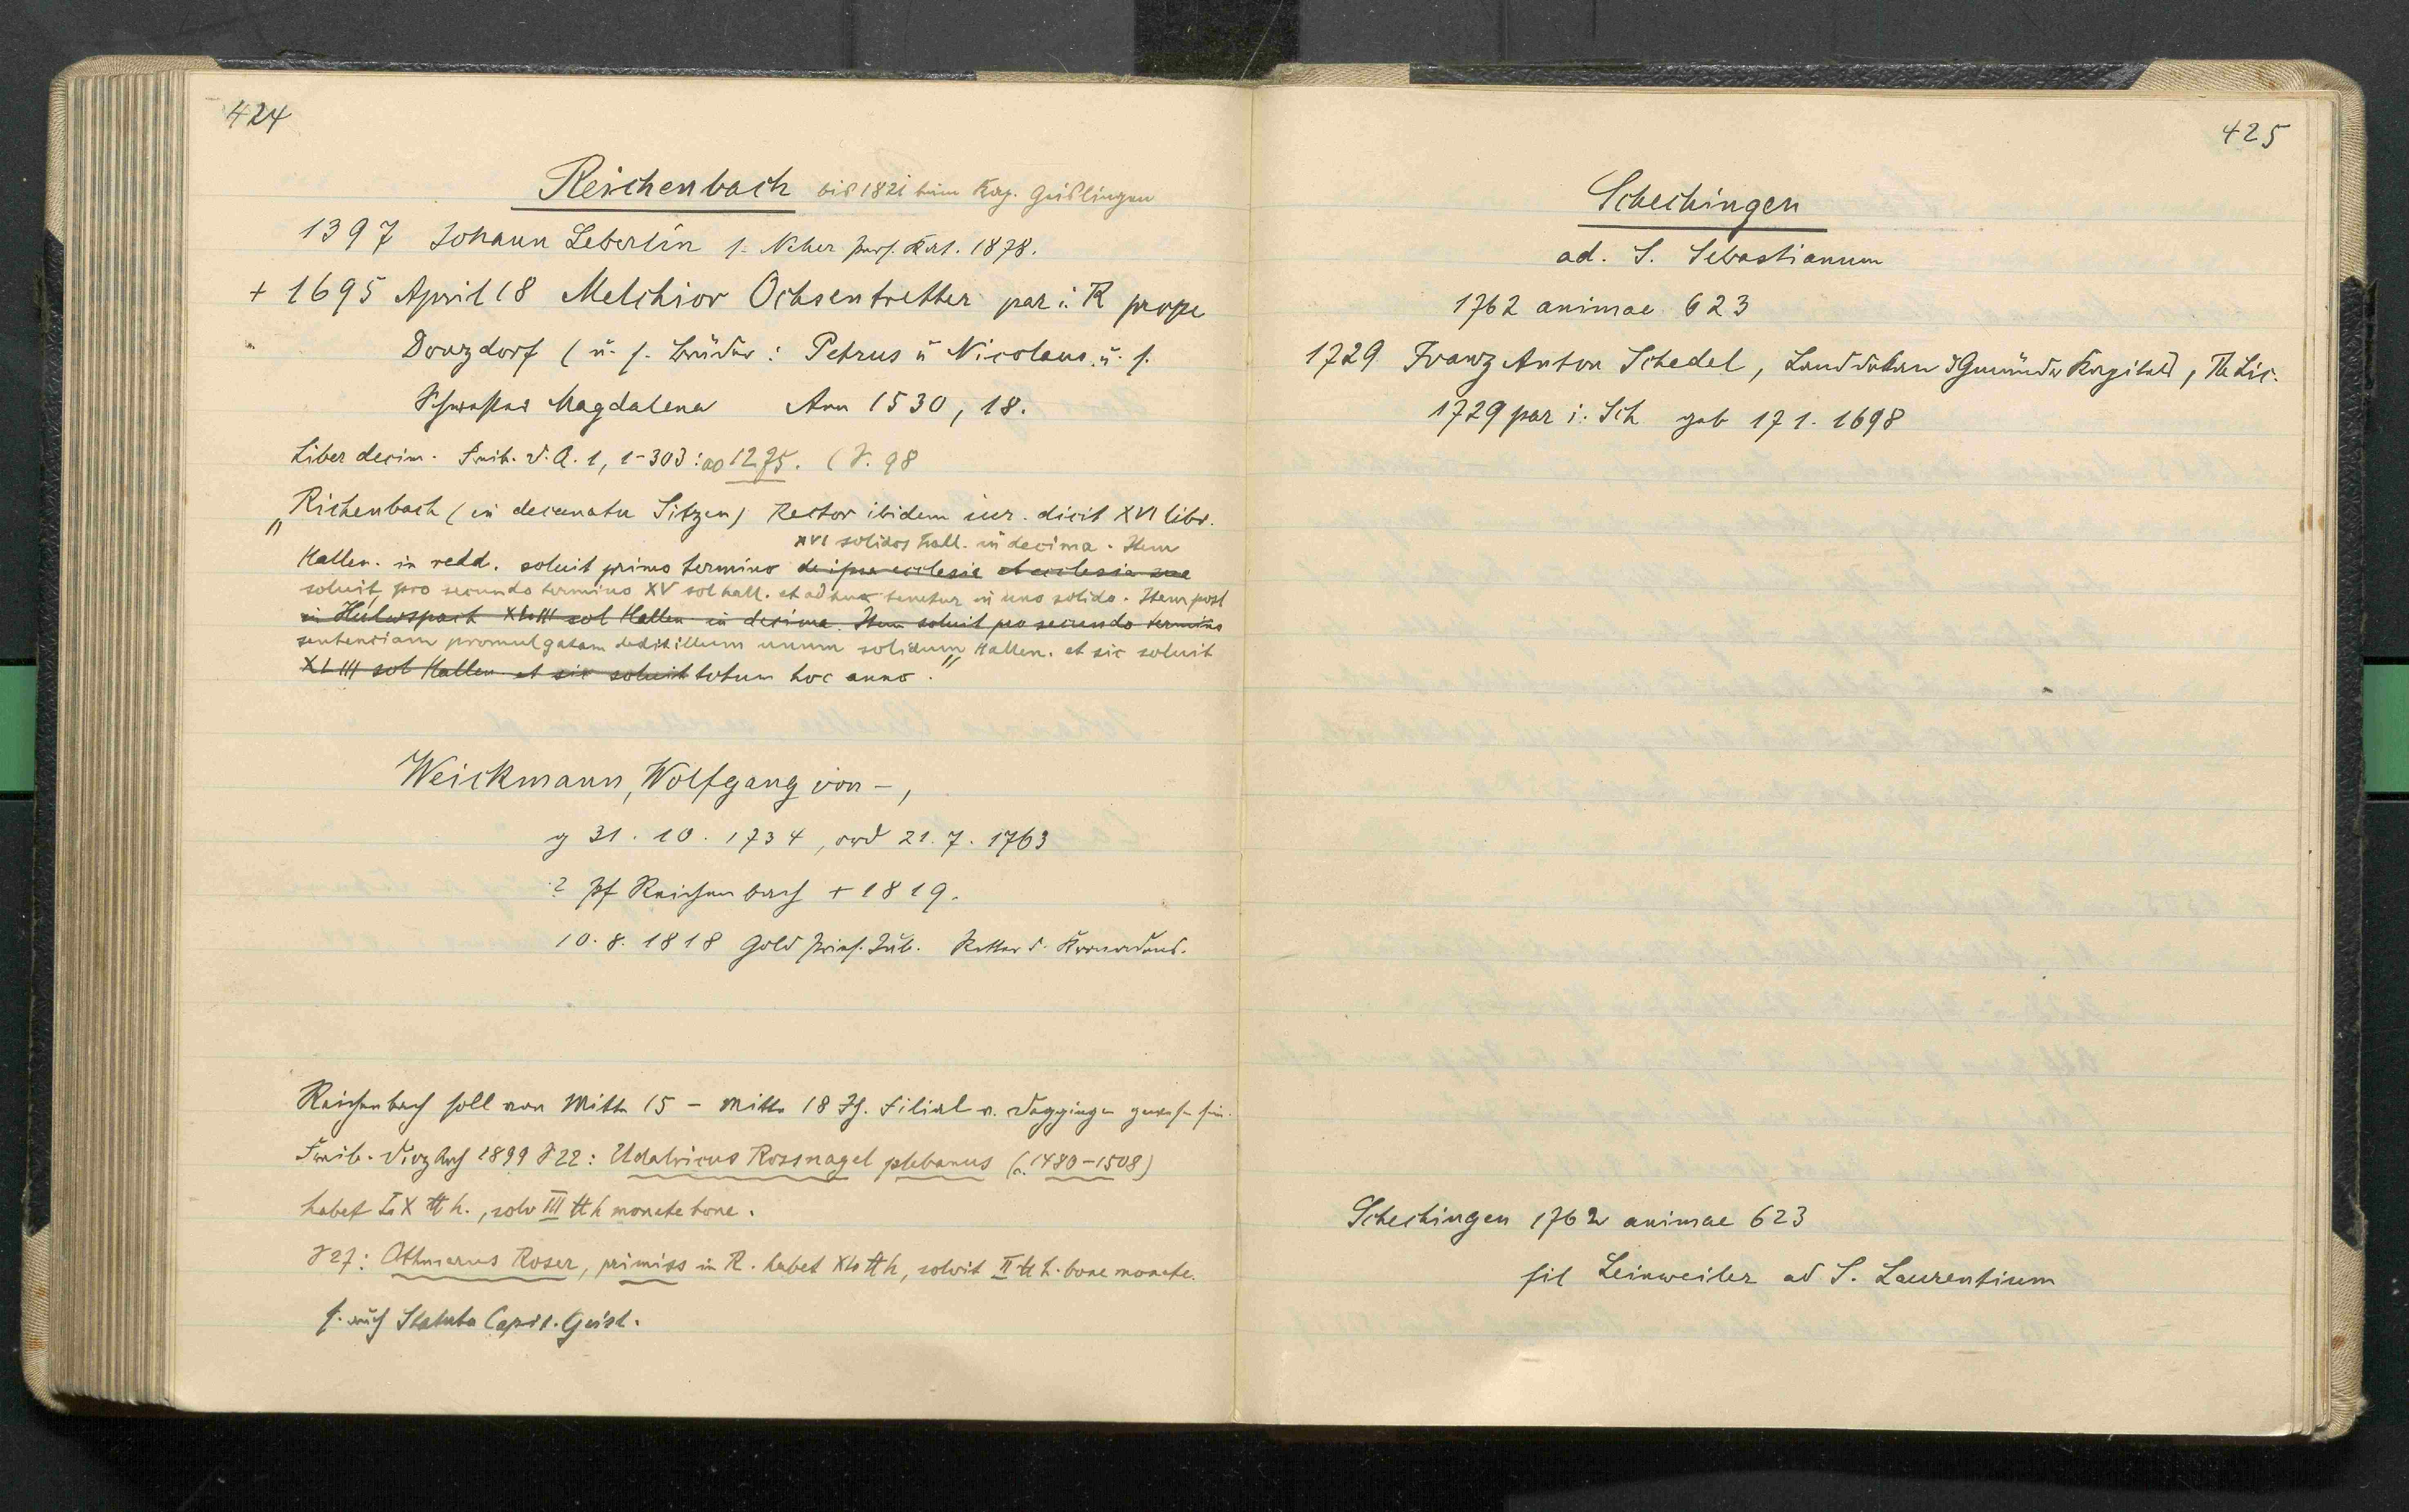 424
Reichenbach bis 1821 beim Kap. Geislingen
1397 Johann Leberlin s. Neher Pers. Kat. 1878.
+ 1695 April 18 Melchior Ochsentretter par i. R prope
Donzdorf (u. s. Brüder: Petrus u Nicolaus u. s.
Schwester Magdalena Ann 1530, 18.
Liber decim. Freib. D. A. 1, 1-303: ao 1275. (S. 98
"Richenbach (in decanatu Sitzen) Rector ibidem iur. dicit XVI libr.
XVI solidos hall. in decima. Item
Hallen. in redd. soluit primo termino de ipsa ecclesia et ecclesia sua
soluit pro secundo termino XV sol hall. et adhuc tenetur in uno solido. Item post
in XLIII sol Hallen in decima. Item soluit pro secundo termino
sentenciam promulgatam dedit illum unum solidum Hallen. et sic soluit
XLIII sol Hallen et sic soluit totum hoc anno."
Weickmann, Wolfgang von -,
g 31. 10. 1734, ord 21. 7. 1763
? Pf Reichenbach + 1819.
10. 8. 1818 Gold Pries. Jub. Ritter d. Kronordens.
Reichenbach soll von Mitte 15 - Mitte 18 Jh. Filial v. Deggingen gewesen sein.
Freib. Diöz Arch 1899 S 22: Udalricus Rossnagel plebanus (c. 1480-1508)
habet LX ℔ h., solv III ℔ h monete bone.
S 27: Othmarus Roser, primiss in R. habet XL ℔ h, solvit II ℔ h. bone monete.
s. auch Statuta Capit. Geisl.
425
Schechingen
ad. S. Sebastianum
1762 animae 623
1729 Franz Anton Schedel, Landdekan d Gmünder Kapitels, Th Lic.
1729 par i. Sch geb 17 1. 1698
Schechingen 1762 animae 623
fil Leinweiler ad S. Laurentium